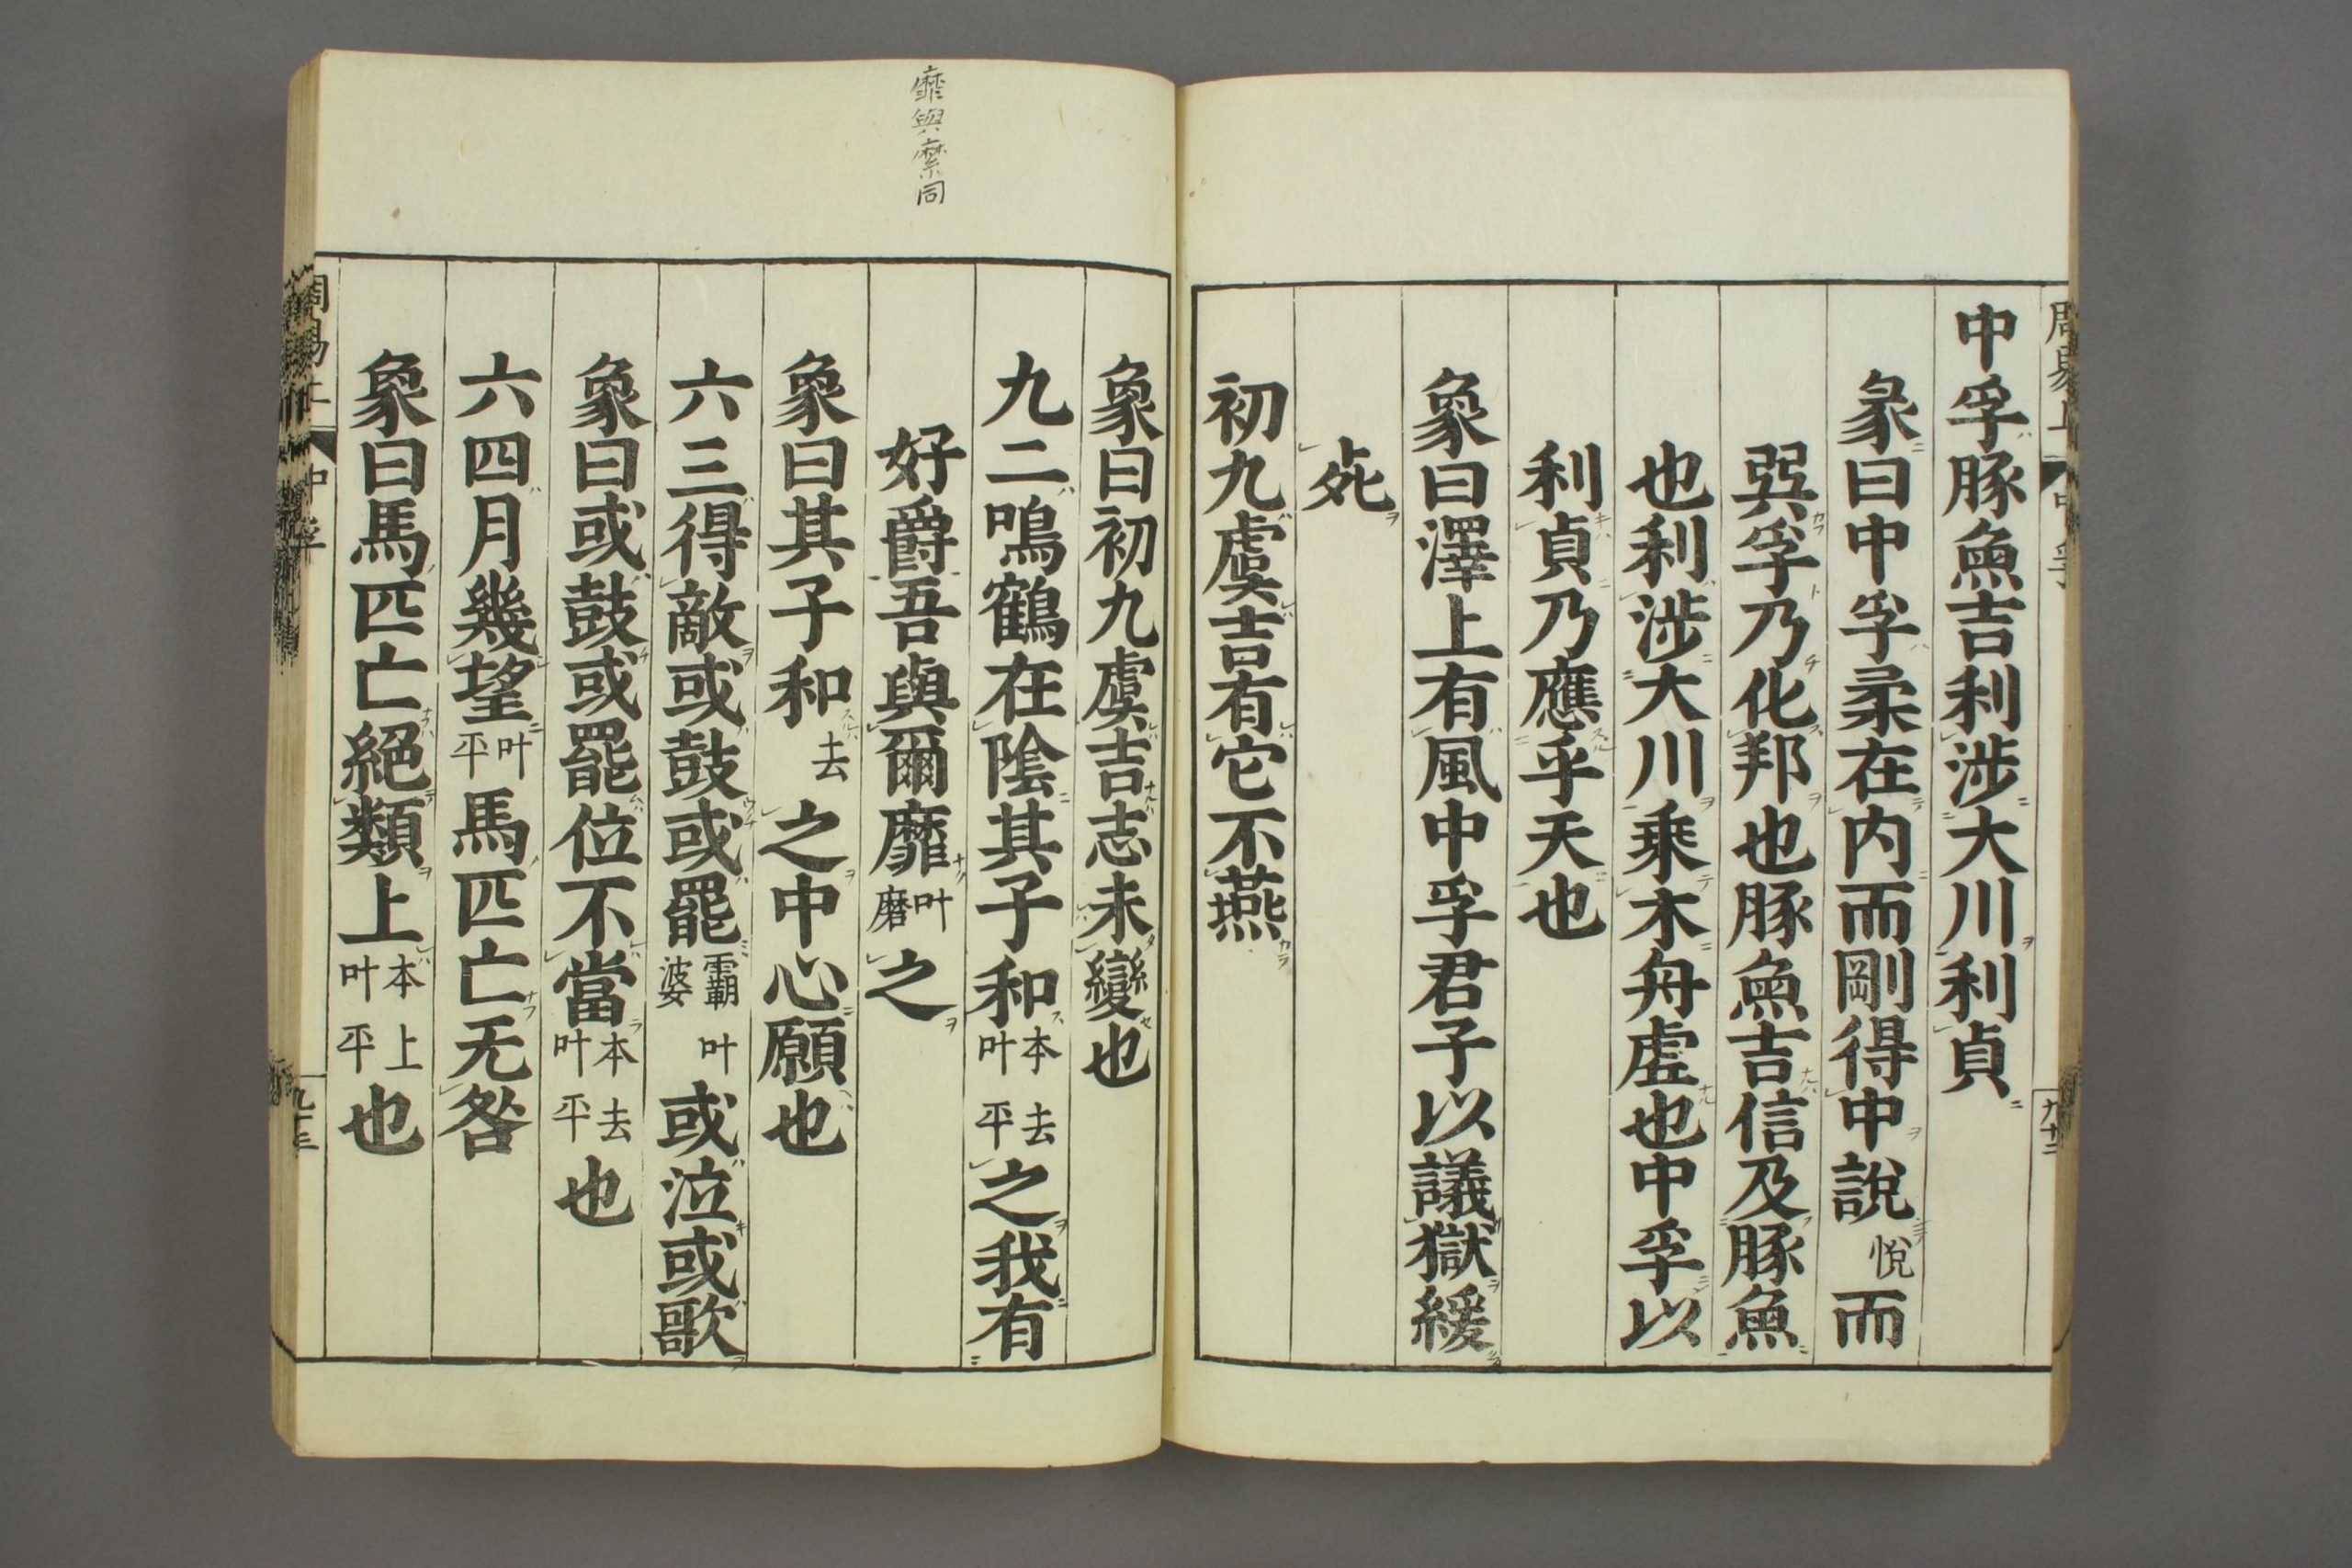 中孚豚魚吉利涉大川利貞
彖曰中孚柔在內而剛得中說悅而
巽孚乃化邦也豚魚吉信及豚魚
也利涉大川乘木舟虛也中孚以
利貞乃應乎天也
象曰澤上有風中孚君子以議獄緩
死
初九虞吉有它不燕
象曰初九虞吉志未變也
九二鳴鶴在陰其子和本去叶平之我有
好爵吾與爾靡叶磨之
靡與縻同
象曰其子和去之中心願也
六三得敵或鼓或罷霸叶婆或泣或歌
象曰或鼓或罷位不當本去叶平也
六四月幾望叶平馬匹亡无咎
象曰馬匹亡絕類上本上叶平也
中孚
九十三